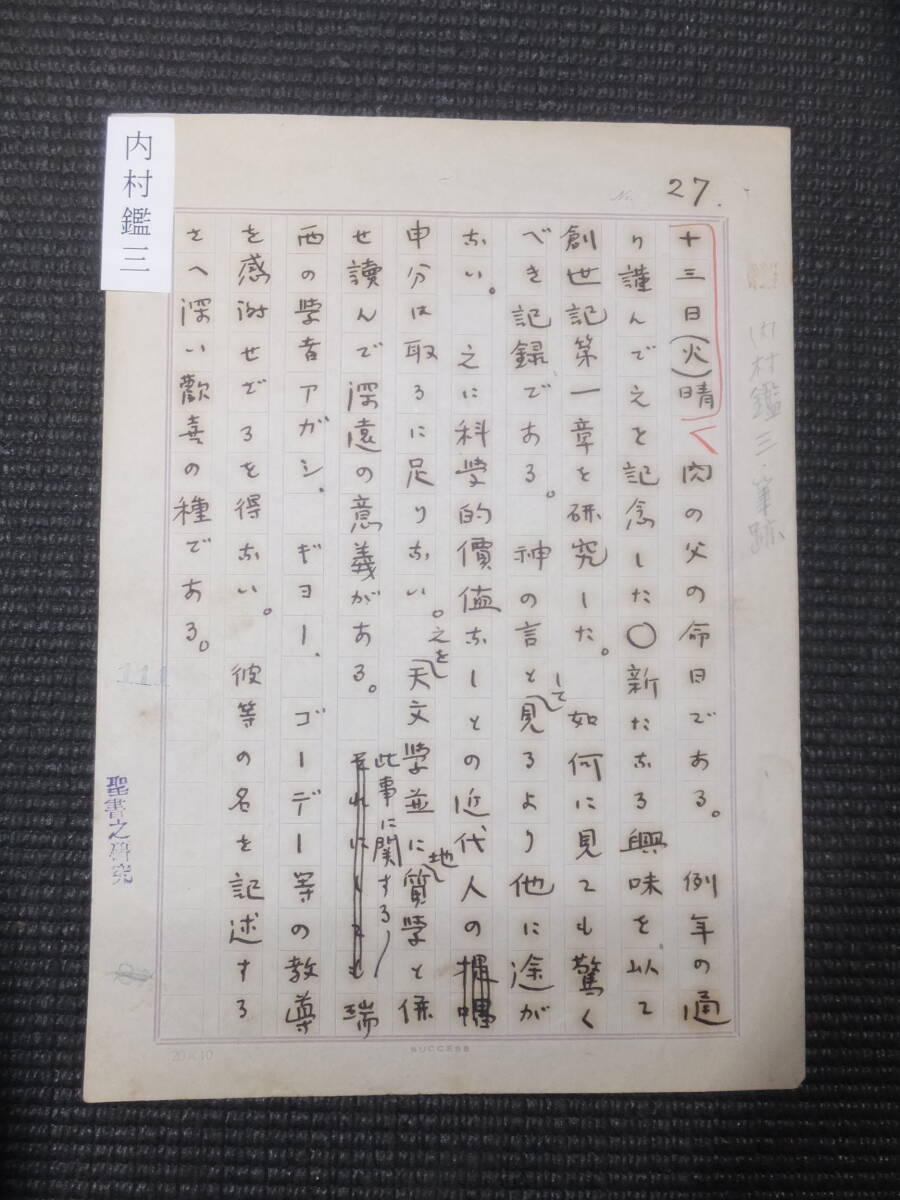 No. 27.
内村鑑三・筆跡
十三日(火)晴 肉の父の命日である。 例年の通
り謹んで之を記念した〇新たなる興味を以て
創世記第一章を研究した。 如何に見ても驚く
べき記録である。 神の言として見るより他に途が
ない。 之に科學的價値なしとの近代人の
申分は取るに足りない。之を天文學並に地質學と併
せ讀んで深遠の意義がある。 此事に関する瑞
西の學者アガシ、ギヨー、ゴーデー等の教導
を感謝せざるを得ない。 彼等の名を記述する
さへ深い歡喜の種である。
内村鑑三
111
聖書之研究
20×10
SUCCESS